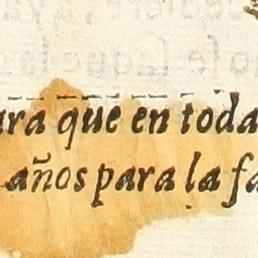 ara que en toda
años para la fa